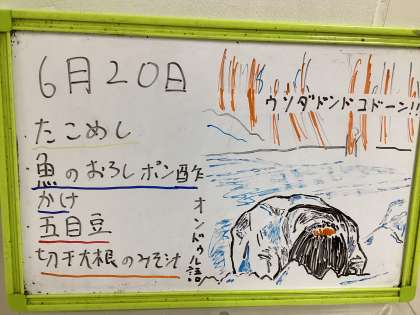 6月20日
たこめし
魚のおろしポン酢
かけ
五目豆
切干大根のみそ汁
ウソダドンドコドーン!!
オンドゥル語